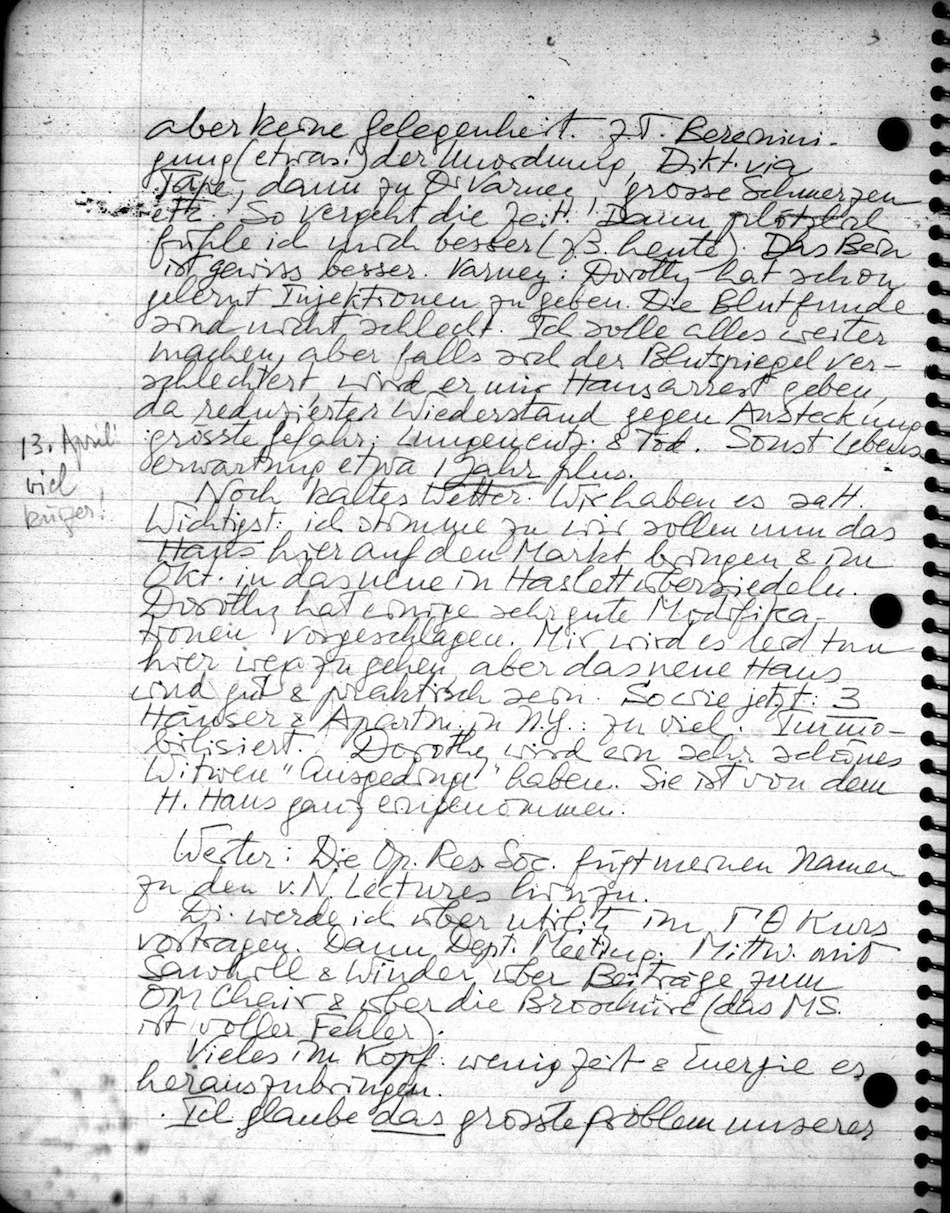 aber keine Gelegenheit. z.T. Bereini-
gung (etwas!) der Unordnung, Dikt. via
Tape, dann zu Dr Varney, grosse Schmerzen
etc. So vergeht die Zeit! Dann plötzlich
fühle ich mich besser (z.B. heute). Das Bein
ist gewiss besser. Varney: Dorothy hat schon
gelernt Injektionen zu geben. Die Blutfunde
sind nicht schlecht. Ich solle alles weiter
machen, aber falls sich der Blutspiegel ver-
schlechtert, wird er mir Hausarrest geben,
da reduzierter Wiederstand gegen Ansteckung
grösste Gefahr: Lungenentz. & Tod. Sonst Lebens
erwartung etwa 1 Jahr plus.
13. April:
viel
kürzer!
Noch kaltes Wetter. Wir haben es satt.
Wichtigst: ich stimme zu wir sollen nun das
Haus hier auf den Markt bringen & im
Okt. in das neue in Haslett übersiedeln.
Dorothy hat einige sehr gute Modifika-
tionen vorgeschlagen. Mir wird es leid tun
hier weg zu gehen aber das neue Haus
wird gut & praktisch sein. So wie jetzt: 3
Häuser & Apartm. in N.Y.: zu viel. Immo-
bilisiert. Dorothy wird ein sehr schönes
Witwen "Ausgedinge" haben. Sie ist von dem
H. Haus ganz eingenommen.
Weiter: Die Op. Res. Soc. fügt meinen Namen
zu den v. N. Lectures hinzu.
Di. werde ich über utility im Γ Θ Kurs
vortragen. Dann Dept. Meeting. Mittw. mit
Sawhill & Winder über Beiträge zum
OM Chair & über die Broschüre (das MS.
ist voller Fehler).
Vieles im Kopf. wenig Zeit & Energie es
herauszubringen.
Ich glaube das grösste Problem unserer